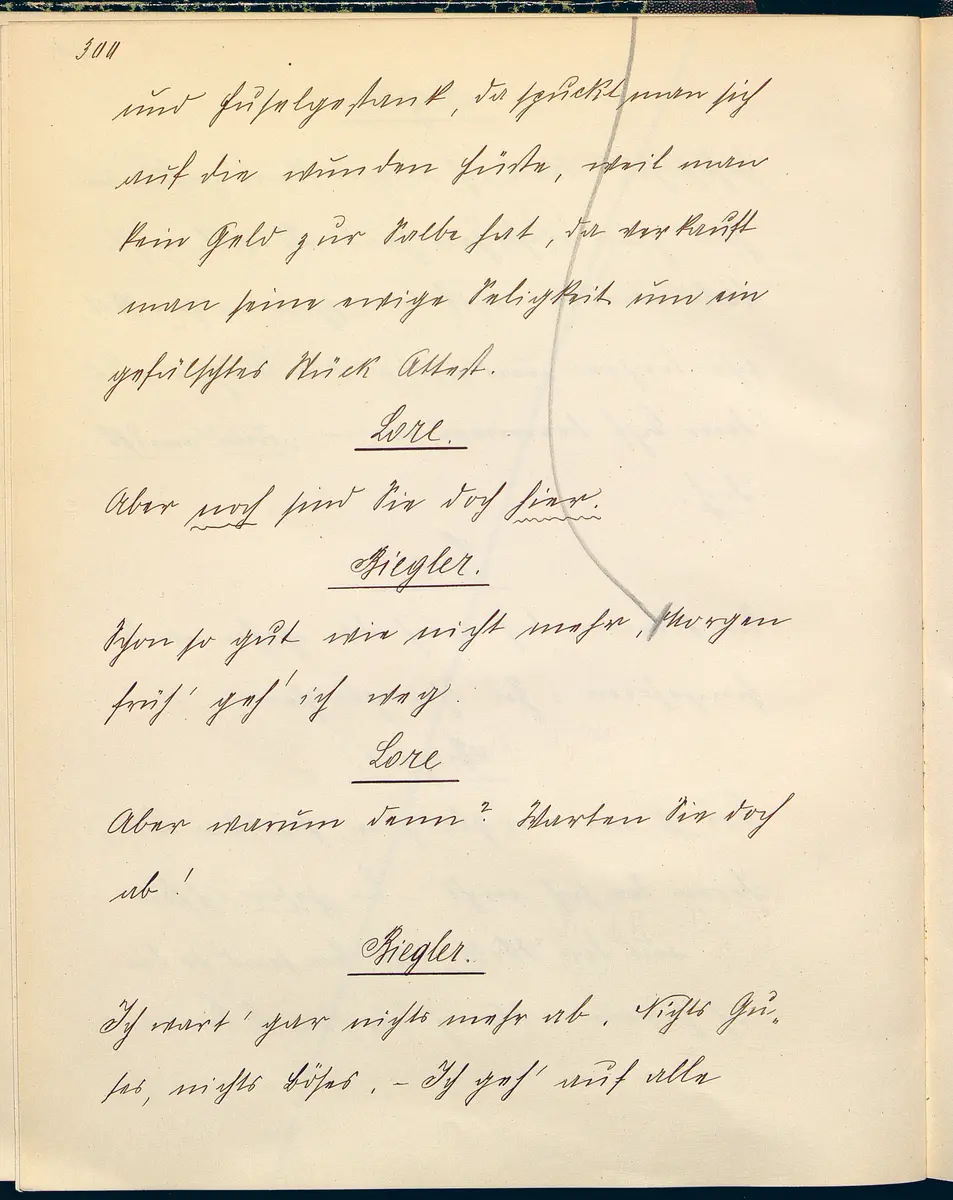 300
und Fuselgestank, da spuckt man sich
auf die wunden Füße, weil man
kein Geld zur Salbe hat, da verkauft
man seine ewige Seligkeit um ein
gefälschtes Stück Attest.
Lore.
Aber noch sind Sie doch hier.
Biegler.
Schon so gut wie nicht mehr, Morgen
früh' geh' ich weg.
Lore
Aber warum denn? Warten Sie doch
ab!
Biegler.
Ich wart' gar nichts mehr ab. Nichts Gu-
tes, nichts Böses. – Ich geh' auf alle